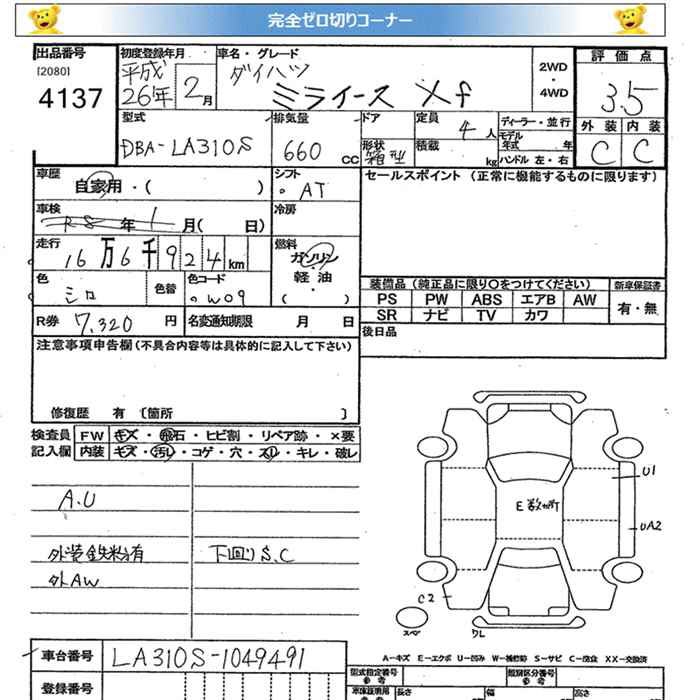 完全ゼロ切りコーナー
出品番号
[2080]
4137
初度登録年月
平成26年 2月
車名・グレード
ダイハツ
ミライース Xf
2WD
・
4WD
評価点
3.5
外装 内装
C C
型式
DBA-LA310S
排気量
660 cc
ドア
形状
箱型
定員
4人
積載
kg
ディーラー・並行
モデル年式 年
ハンドル 左・右
車歴
自家用・( )
シフト
AT
車検
R8年1月( 日)
冷房
走行
16万6千924km
燃料
ガソリン
・
軽油
( )
色
シロ
色替
色コード
W09
R券 7,320 円
名変通知期限 月 日
セールスポイント (正常に機能するものに限ります)
装備品 (純正品に限り○をつけてください)
PS PW ABS エアB AW
SR ナビ TV カワ
新車保証書
有・無
後日品
注意事項申告欄(不具合内容等は具体的に記入して下さい)
修復歴 有 〔箇所 〕
検査員記入欄
FW キズ・飛石・ヒビ割・リペア跡・×要
内装 キズ・汚れ・コゲ・穴・スレ・キレ・破レ
A.U
外装鉄粉有
下回りS.C
外AW
U1
E数ヶ所
UA2
C2
スペア
ワレ
A-キズ E-エクボ U-凹み W-補修跡 S-サビ C-腐食 XX-交換済
車台番号 LA310S-1049491
登録番号
型式指定番号
参考
類別区分番号
参考
車庫証明用
長さ 幅 高さ